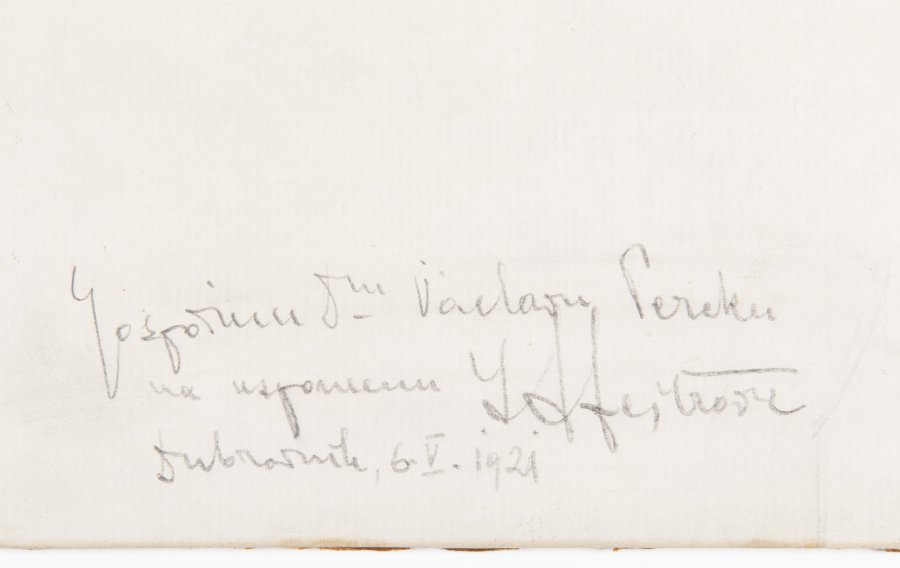 Gospodinu Dru Vaclavu Pereku
na uspomenu I Meštrović
Dubrovnik, 6. V. 1921